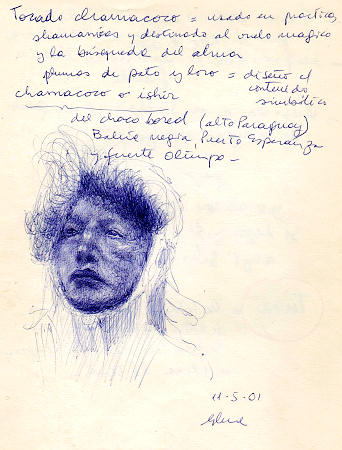 Tocado chamacoco = usado en practicas
shamanicas y destinado al vuelo magico
y la búsqueda del alma
plumas de pato y loro = diseño et
contenido
simbólico
chamacoco o ishir
del chaco boreal (alto Paraguay)
Bahia negra, Puerto Esperanza
y fuerte Olimpo -
11-5-01